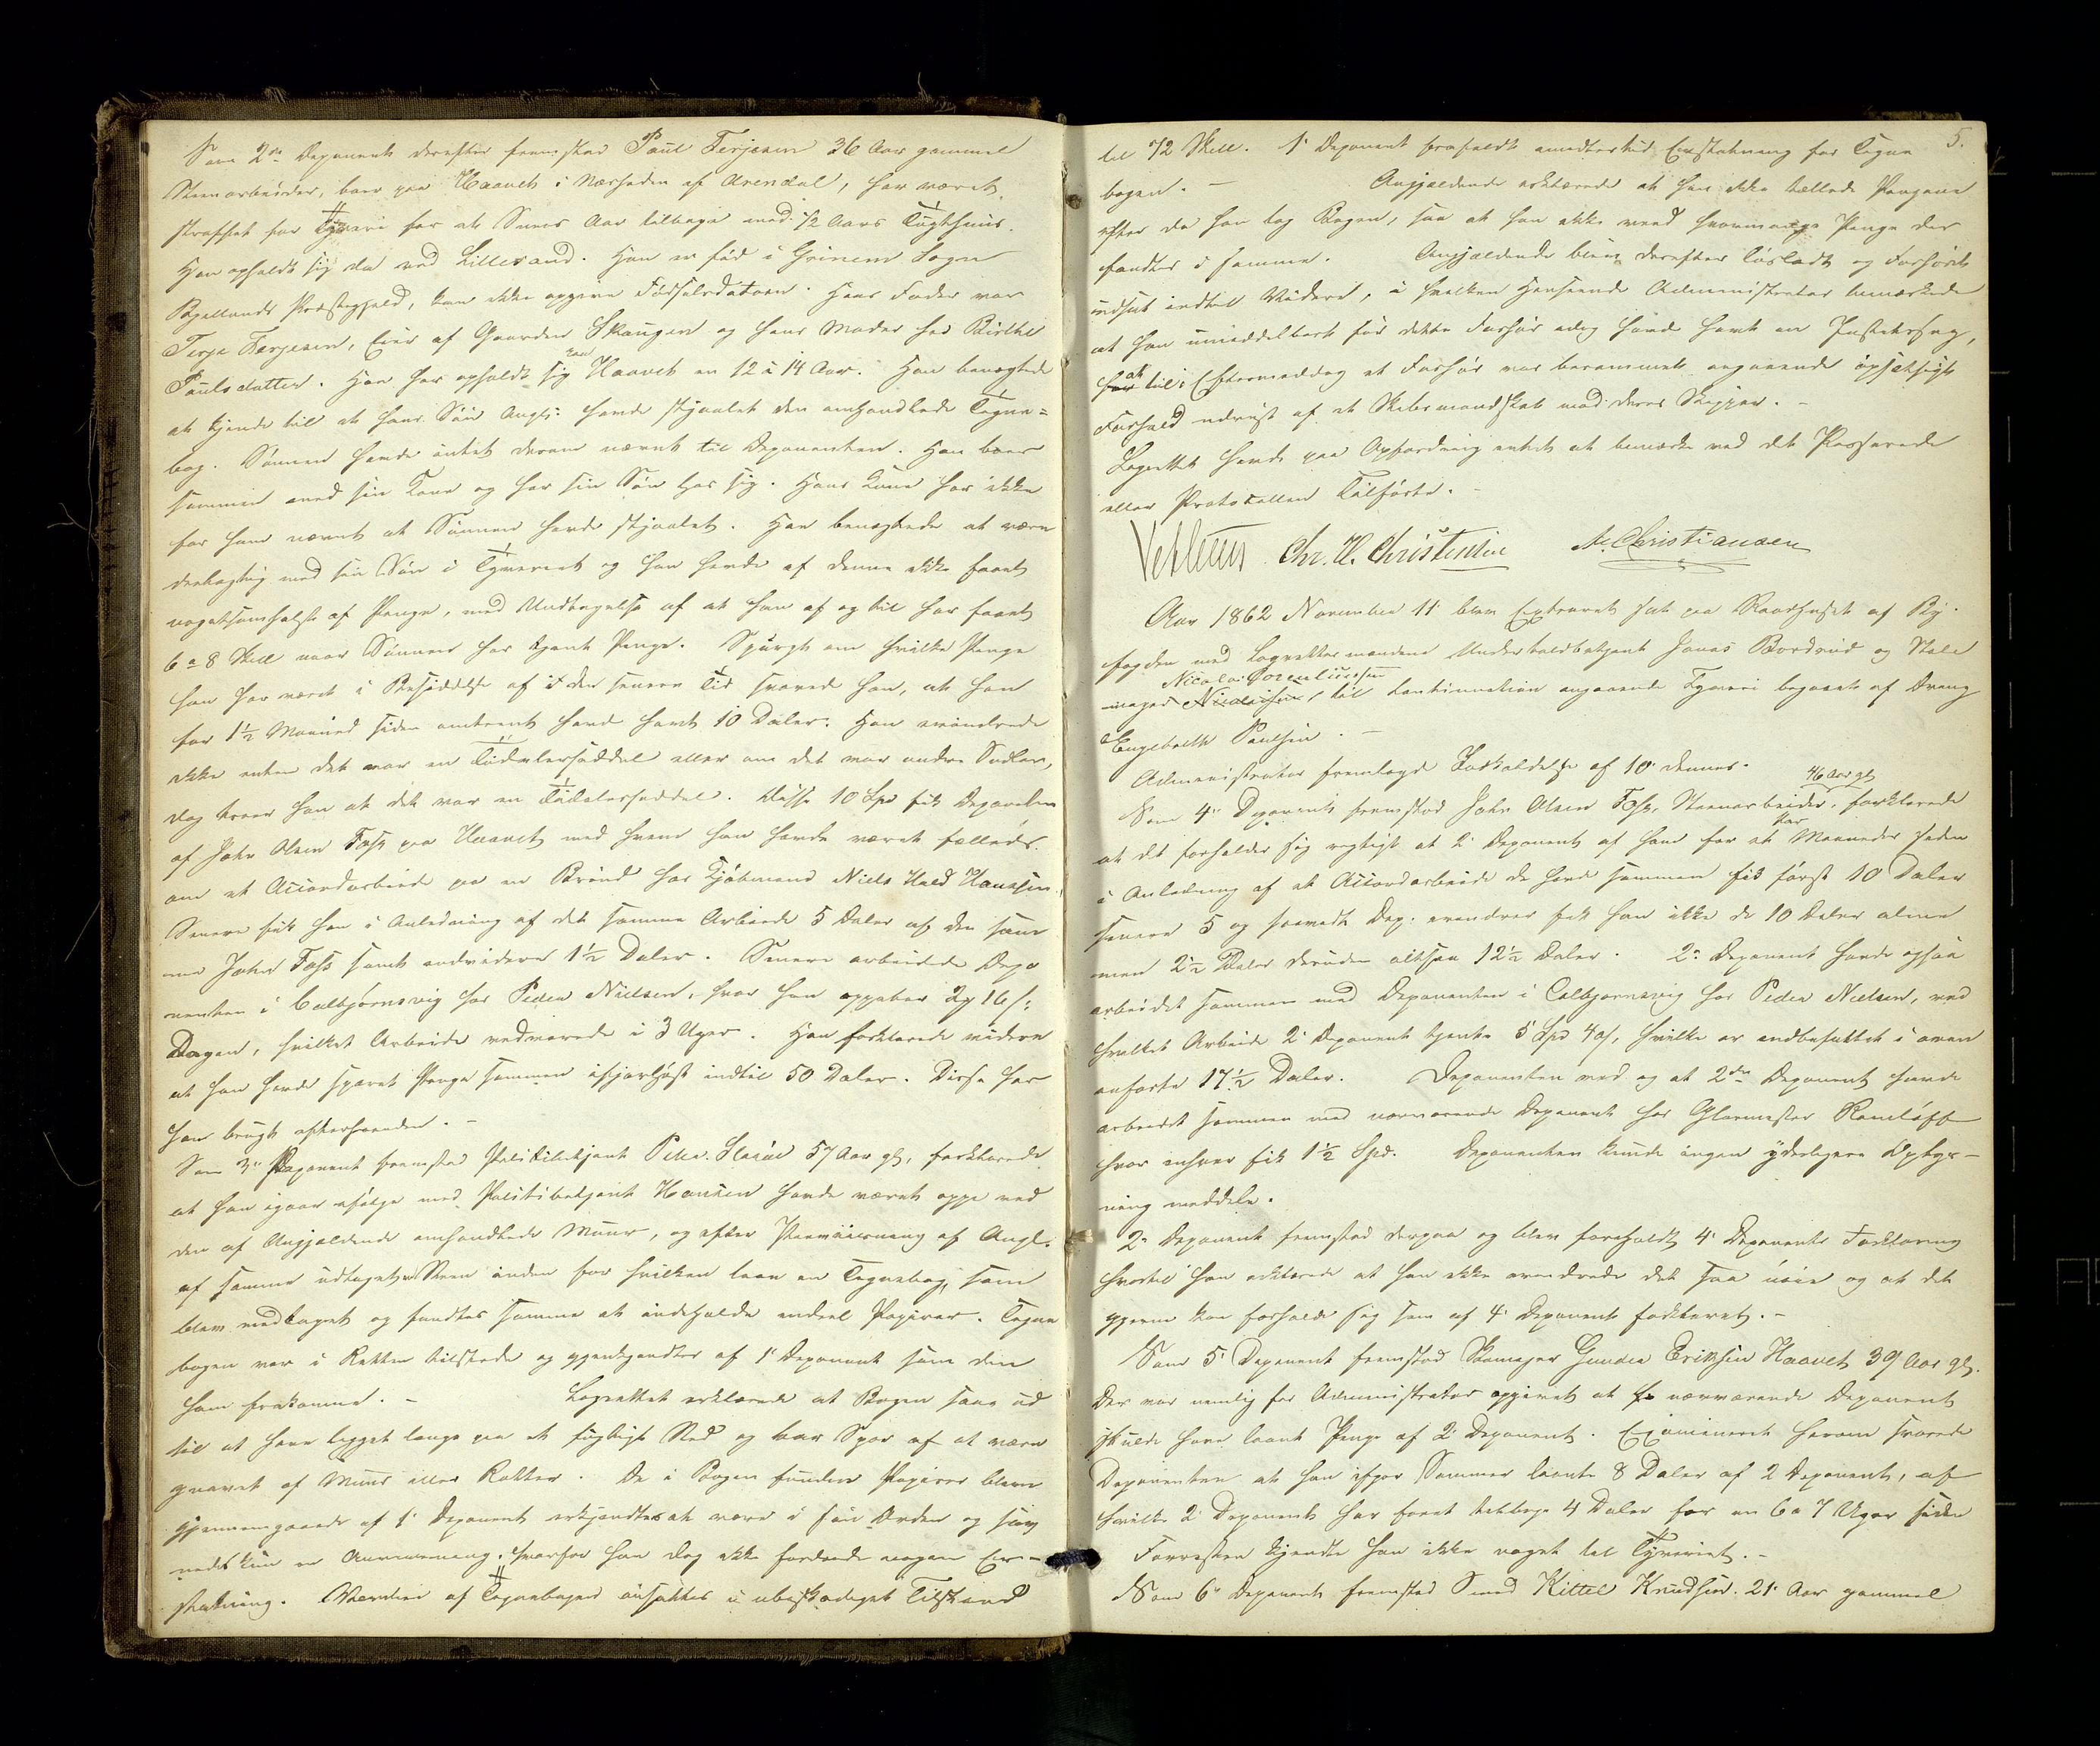 Som 2den Deponent derefter fremstod Paul Terjesen 36 Aar gammel
Steenarbeider, boer paa Haavet i Nærheden af Arendal, har været
straffet for Tyveri for et Snees Aar tilbage med 1/2 Aars Tugthuus.
Han opholdt sig da ved Lillesand. Han er fød i Grinem Sogn
Bjellands Præstegjeld, kan ikke opgive Fødselsdatoen. Hans Fader var
Terje Terjesen, Eier af Gaarden Skaugen og hans Moder hed Birthe
Paulsdatter. Han har opholdt sig paa Haavet en 12 à 14 Aar. Han benegtede
at kjende til at hans Søn Angl: havde stjaalet den omhandlede Tegne=
bog. Sønnen havde intet derom nævnt til Deponenten. Han boer
sammen med sin Kone og har sin Søn hos sig. Hans Kone har ikke
for ham nævnt at Sønnen havde stjaalet. Han benegtede at være
deelagtig med sin Søn i Tyveriet og han havde af denne ikke faaet
nogetsomhelst af Penge, med Undtagelse af at han af og til har faaet
6 a 8 Skill naar Sønnen har tjent Penge. Spurgt om hvilke Penge
han har været i Besiddelse af i den senere Tid svarede han, at han
for 1½ Maaned siden omtrent havde havt 10 Daler. Han erindrede
ikke enten det var en Tidalerseddel eller om det var andre Sedler,
dog troer han at det var en Tidalerseddel. Disse 10 Spd fik Deponenten
af John Olsen Foss paa Haavet med hvem han havde været fælleds
om et Accordarbeide paa en Brønd hos Kjøbmand Niels Hald Hanssen.
Senere fik han i Anledning af det samme Arbeide 5 Daler af den sam
me John Foss samt endvidere 1½ Daler. Senere arbeidede Depo
nenten i Colbjørnsvig hos Peder Nielsen, hvor han oppebar 2 16 s:
Dagen, hvilket Arbeide vedvarede i 3 Uger. Han forklarede videre
at han havde sparet Penge sammen ifjorhøst indtil 50 Daler. Disse har
han brugt efterhaanden. –
Som 3die Deponent fremstod Politibetjent Peder 57 Aar gl, forklarede
at han igaar ifølge med Politibetjent Hansen havde været oppe ved
den af Angjældende omhandlede Muur, og efter Paaviisning af Angl.
af samme udtaget Steen inden for hvilken laae en Tegnebog, som
blev medtaget og fandtes samme at indeholde endeel Papirer. Tegne
bogen var i Retten tilstede og gjenkjendtes af 1ste Deponent som den
ham frakomne. – Lagrettet erklærede at Bogen saae ud
til at have ligget længe paa et fugtigt Sted og bar Spor af at være
gnavet af Muus eller Rotter. De i Bogen fundne Papirer bleve
gjennemgaaede af 1ste Deponent erkjendtes at være i sin Orden og sav
nedes kun en Anviisning, hvorfor han dog ikke fordrede nogen Er-
statning. Værdien af Tegnebogen ansattes i ubeskadiget Tilstand
5.
til 72 Skill. 1ste Deponent frafaldt imidlertid Erstatning for Tegne
bogen. – Angjældende erklærede at han ikke tællede Pengene
efter da han tog Bogen, saa at han ikke veed hvormange Penge der
fandtes i samme. Angjældende blev derefter løsladt og Forhøret
udsat indtil Videre, i hvilken Henseende Administrator bemærkede
at han umiddelbart før dette Forhør og havde havt en Justitssag,
at til Eftermiddag et Forhør var berammet angaaende opsætsigt
Forhold udvist af et Skibsmandskab mod deres Skipper. –
Lagrettet havde paa Opfordring intet at bemærke ved det Passerede
eller Protokollen Tilførte. –
Chr. H. Christensen M. Christiansen
Aar 1862 November 11 blev Extraret sat paa Raadhuset af By-
fogden med Lagrettesmændene Underholdbetjent Jonas Bordvid og Stol
Nicolai Torenlussen
mager Nicolaisen, til Continuation angaaende Tyveri begaaet af Dreng
Engebreth Paulsen. –
Administrator fremlagde Indkaldelse af 10 dennes.
46 Aar gl
Som 4de Deponent fremstod John Olsen Foss, Steenarbeider, forklarede
at det forholder sig rigtigt at 2 Deponent af ham for et Par Maaneder siden
i Anledning af et Accordarbeide de havde sammen fik først 10 Daler
senere 5 og saavidt Dep: erindrer fik han ikke de 10 Daler alene
men 2½ Daler desuden altsaa 12½ Daler. 2den Deponent havde ogsaa
arbeidet sammen med Deponenten i Colbjørnsvig hos Peder Nielsen, ved
hvilket Arbeide 2 Deponent tjente 5 Spd 4 , hvilke er indbefattet i oven
anførte 17½ Daler. Deponenten veed og at 2den Deponent havde
arbeidet sammen med nærværende Deponent hos Glarmester Romløff
hvor enhver fik 1½ Spd. Deponenten kunde ingen yderligere Oplys-
ning meddele.
2 Deponent fremstod derpaa og blev foreholdt 4 Deponents Forklaring
hvortil han erklærede at han ikke erindrede det saa nøie og at det
gjerne kan forholde sig som af 4 Deponent forklaret. –
Som 5 Deponent fremstod Skomager Gunder Eriksen Haavet 39 Aar gl.
Der var nemlig for Administrator opgivet at nærværende Deponent
skulde have laant Penge af 2 Deponent. Examineret herom svarede
Deponenten at han ifjor Sommer laante 8 Daler af 2 Deponent, af
hvilke 2 Deponent har faaet tilbage 4 Daler for en 6 a 7 Uger siden
Forresten kjendte han ikke noget til Tyveriet. –
Som 6 Deponent fremstod Smed Kittel Knudsen 21 Aar gammel